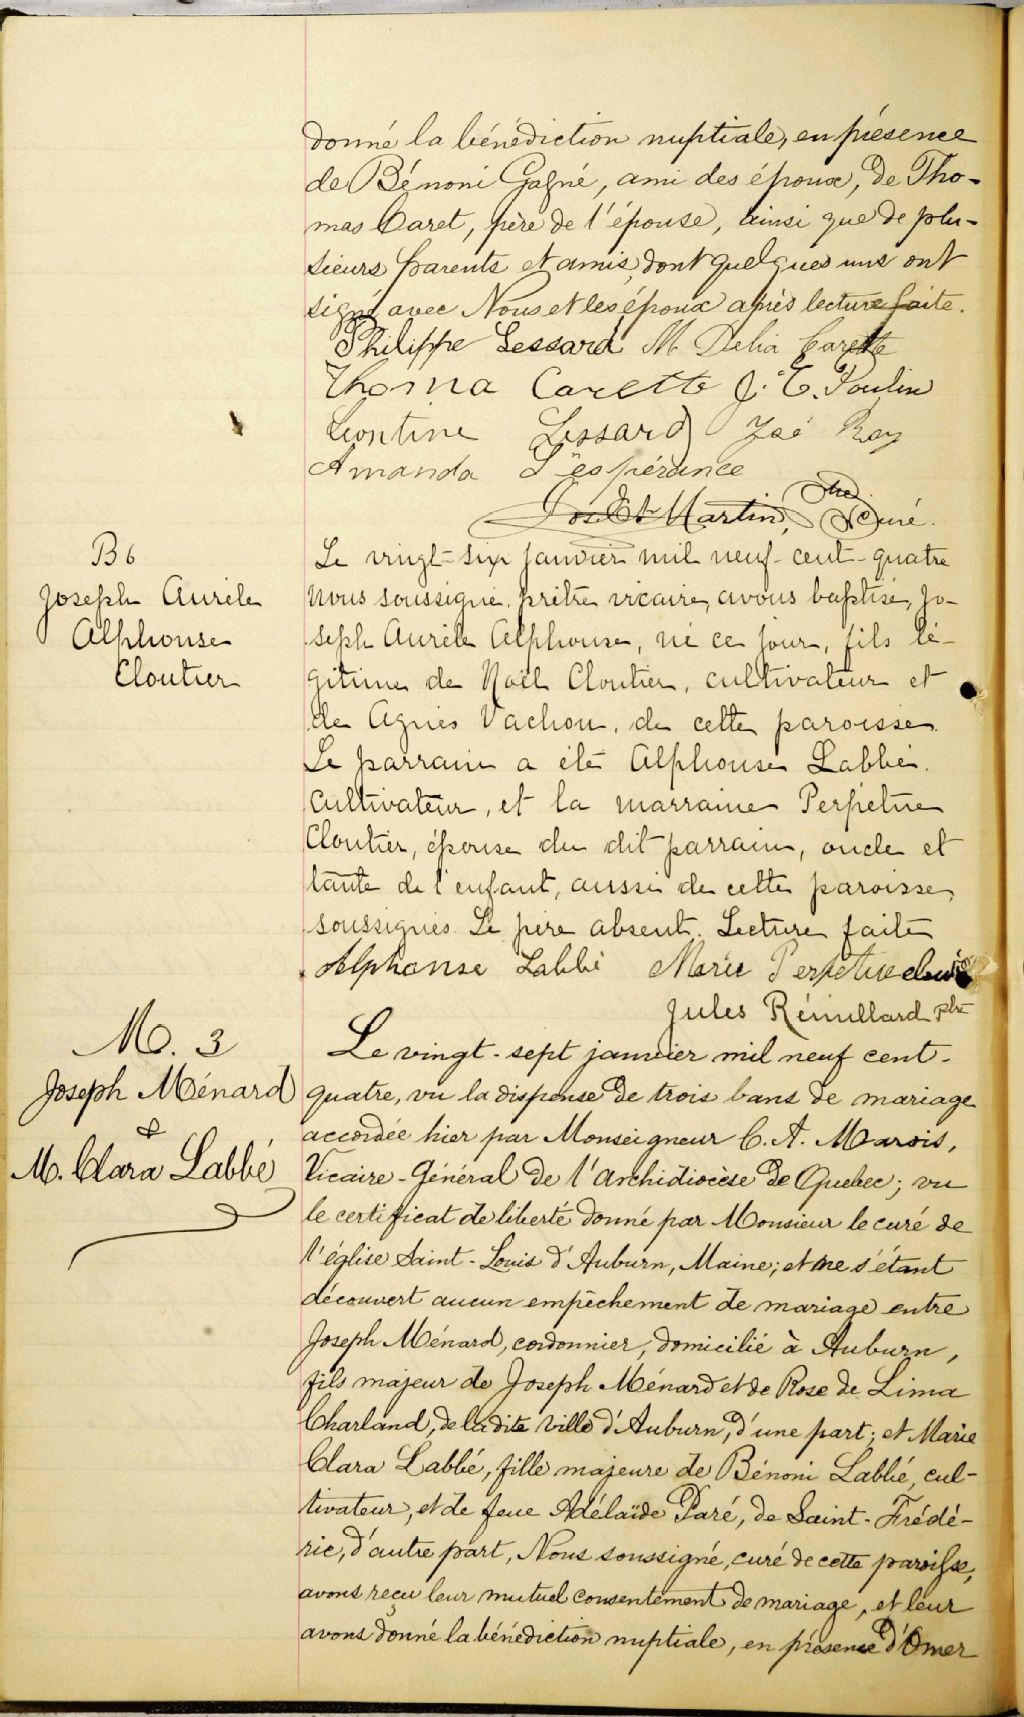 donné la bénédiction nuptiale, en présence
de Bénoni Gagné, ami des époux, de Tho-
mas Caret, père de l'épouse, ainsi que de plu-
sieurs parents et amis, dont quelques uns ont
signé avec Nous et les époux après lecture faite.
Philippe Lessard M. Delia Carette
Thoma Carette J. E. Poulin
Leontine Lessard Zoé Roy
Amanda Lespérance
Jos. Et. Martin, Ptre Curé.
B 6
Joseph Aurèle
Alphonse
Cloutier
Le vingt-six janvier mil neuf-cent-quatre
nous soussigné, prêtre vicaire, avons baptisé, Jo-
seph Aurèle Alphonse, né ce jour, fils lé-
gitime de Noël Cloutier, cultivateur et
de Agnès Vachon, de cette paroisse.
Le parrain a été Alphonse Labbé,
cultivateur, et la marraine Perpétue
Cloutier, épouse du dit parrain, oncle et
tante de l'enfant, aussi de cette paroisse,
soussignés. Le père absent. Lecture faite
Alphonse Labbé Marie Perpetue
Jules Rémillard ptre
M. 3
Joseph Ménard
&
M. Clara Labbé
Le vingt-sept janvier mil neuf cent-
quatre, vu la dispense de trois bans de mariage
accordée hier par Monseigneur C. A. Marois,
Vicaire-Général de l'Archidiocèse de Quebec; vu
le certificat de liberté donné par Monsieur le curé de
l'église Saint-Louis d'Auburn, Maine; et ne s'étant
découvert aucun empêchement de mariage entre
Joseph Ménard, cordonnier, domicilié à Auburn,
fils majeur de Joseph Ménard et de Rose de Lima
Charland, de la dite ville d'Auburn, d'une part; et Marie
Clara Labbé, fille majeure de Bénoni Labbé, cul-
tivateur, et de feue Adélaïde Paré, de Saint-Frédé-
ric, d'autre part, Nous soussigné, curé de cette paroisse,
avons reçu leur mutuel consentement de mariage, et leur
avons donné la bénédiction nuptiale, en présence d'Omer